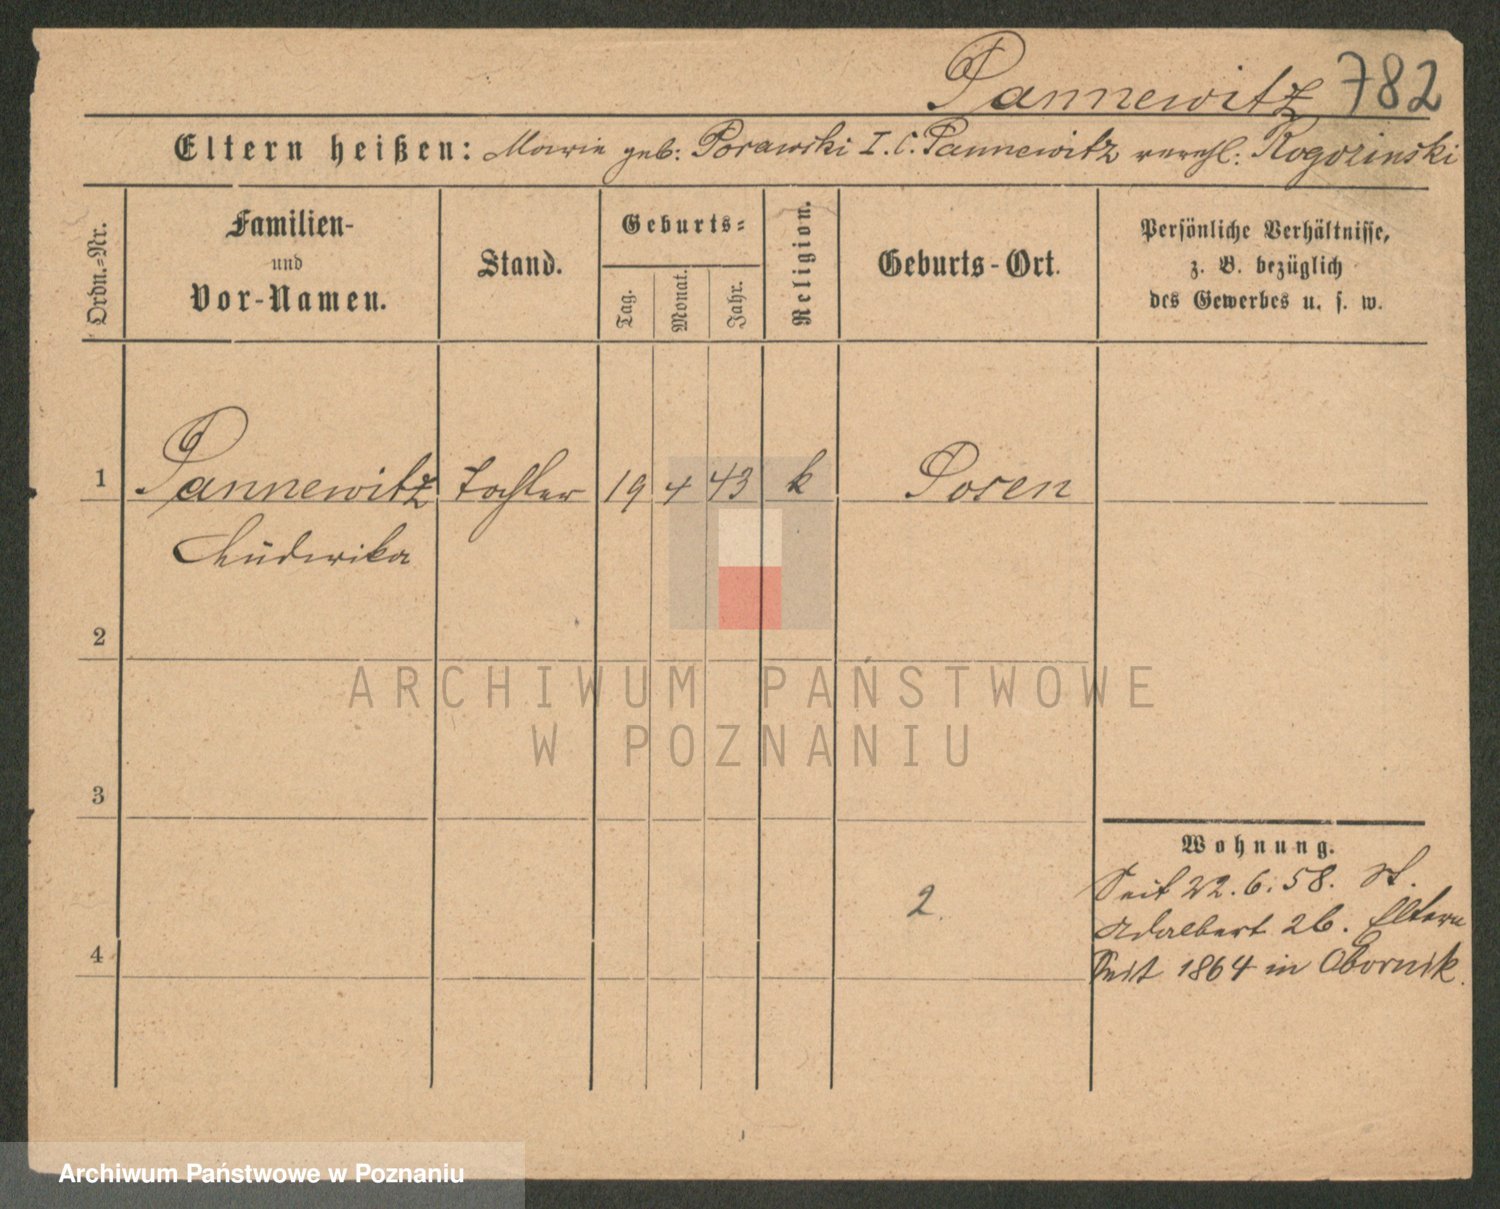 Pannewitz 782
Eltern heißen: Marie geb: Porawski I. C. Pannewitz verehl: Rogozinski
Ordn.-Nr.
Familien-
und
Vor-Namen.
Stand.
Geburts-
Tag.
Monat.
Jahr.
Religion.
Geburts-Ort.
Persönliche Verhältnisse,
z. B. bezüglich
des Gewerbes u. s. w.
1 Pannewitz Tochter 19 4 43 k Posen
Ludwika
2
ARCHIWUM PAŃSTWOWE
W POZNANIU
3
Wohnung.
Seit 22.6.58. St.
Adalbert 26. Eltern
Seit 1864 in Obornik.
2
4
Archiwum Państwowe w Poznaniu